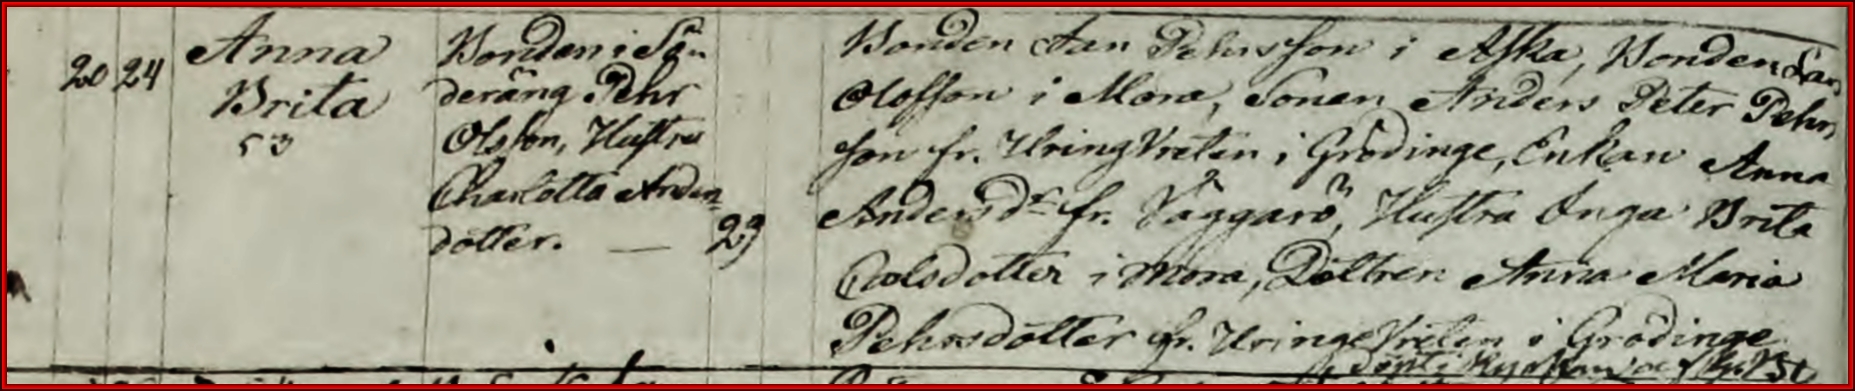 20 24
Anna
Brita
53
Bonden i Sö-
deräng Pehr
Olsson, Hustru
Charlotta Anders-
dotter. — 29
Bonden Jan Pehrsson i Aska, Bonden Lars
Olofsson i Mora, Sonen Anders Peter Pehrs
son fr. UringeVreten i Grödinge, Enkan Anna
Andersdr fr. Väggarö, Hustru Inga Brita
Carlsdotter i Mora, Dottren Anna Maria
Pehrsdotter fr. UringeVreten i Grödinge